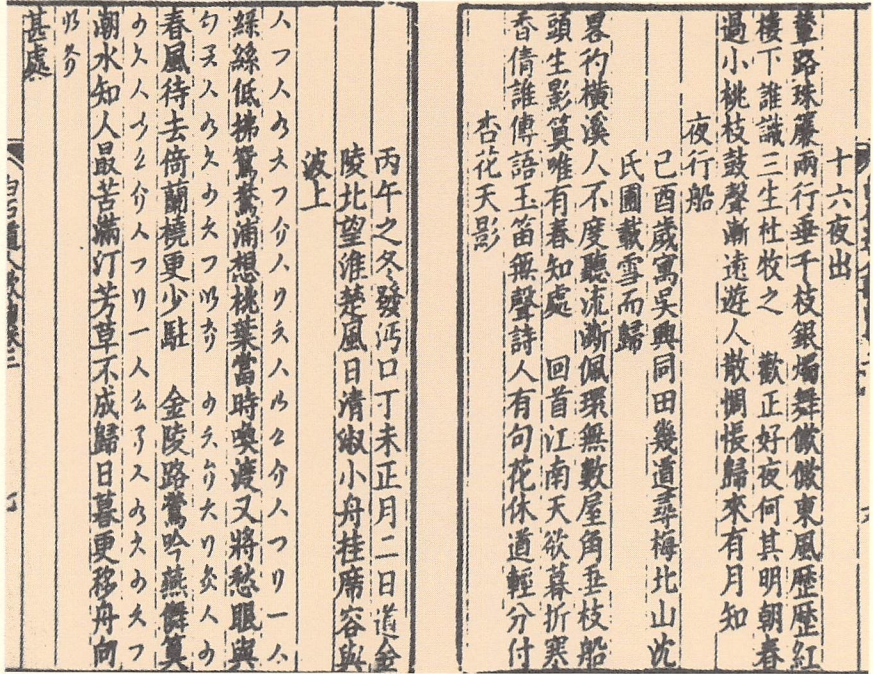 十六夜出
輦路珠簾兩行垂千枝銀燭舞僛僛東風歷歷紅
樓下誰識三生杜牧之　歡正好夜何其明朝春
過小桃枝鼓聲漸遠遊人散惆悵歸來有月知
夜行船
己酉歲寓吳興同田幾道尋梅北山沈
氏圃載雪而歸
畧彴橫溪人不度聽流澌佩環無數屋角垂枝船
頭生影筭唯有春知處　回首江南天欲暮折寒
香倩誰傳語玉笛無聲詩人有句花休道輕分付
杏花天影
丙午之冬發沔口丁未正月二日道金
陵北望淮楚風日清淑小舟挂席容與
波上
綠絲低拂鴛鴦浦想桃葉當時喚渡又將愁眼與
春風待去倚蘭橈更少駐　金陵路鶯吟燕儛筭
潮水知人最苦滿汀芳草不成歸日暮更移舟向
甚處